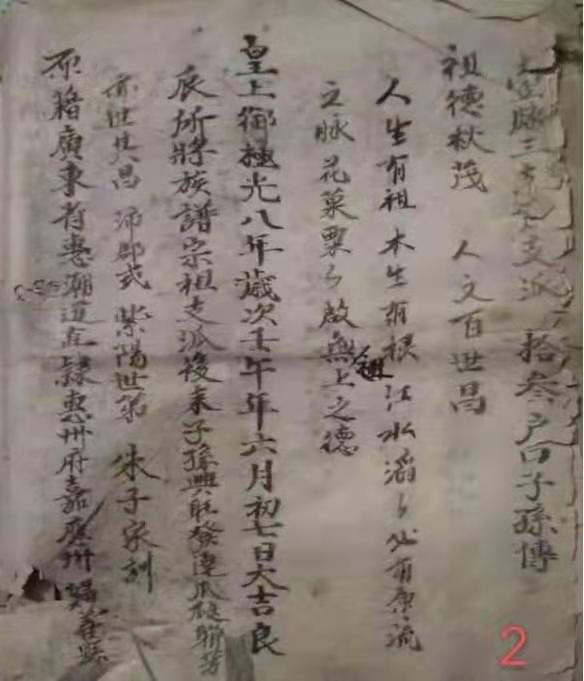 脉三支派拾叁户口子孫傳
祖德秋茂 人文百世昌
人生有祖木生有根江水滔々必有原流
之脉花菓粟々啟無上之德
皇上御極光八年歲次壬午年六月初七日大吉良
辰所將族譜宗祖支派後来子孫興旺發達瓜瓞聯芳
世其昌 沛郡式 紫陽世第 朱子家訓
原籍廣東省惠潮道直隸惠州府嘉應州縣
2